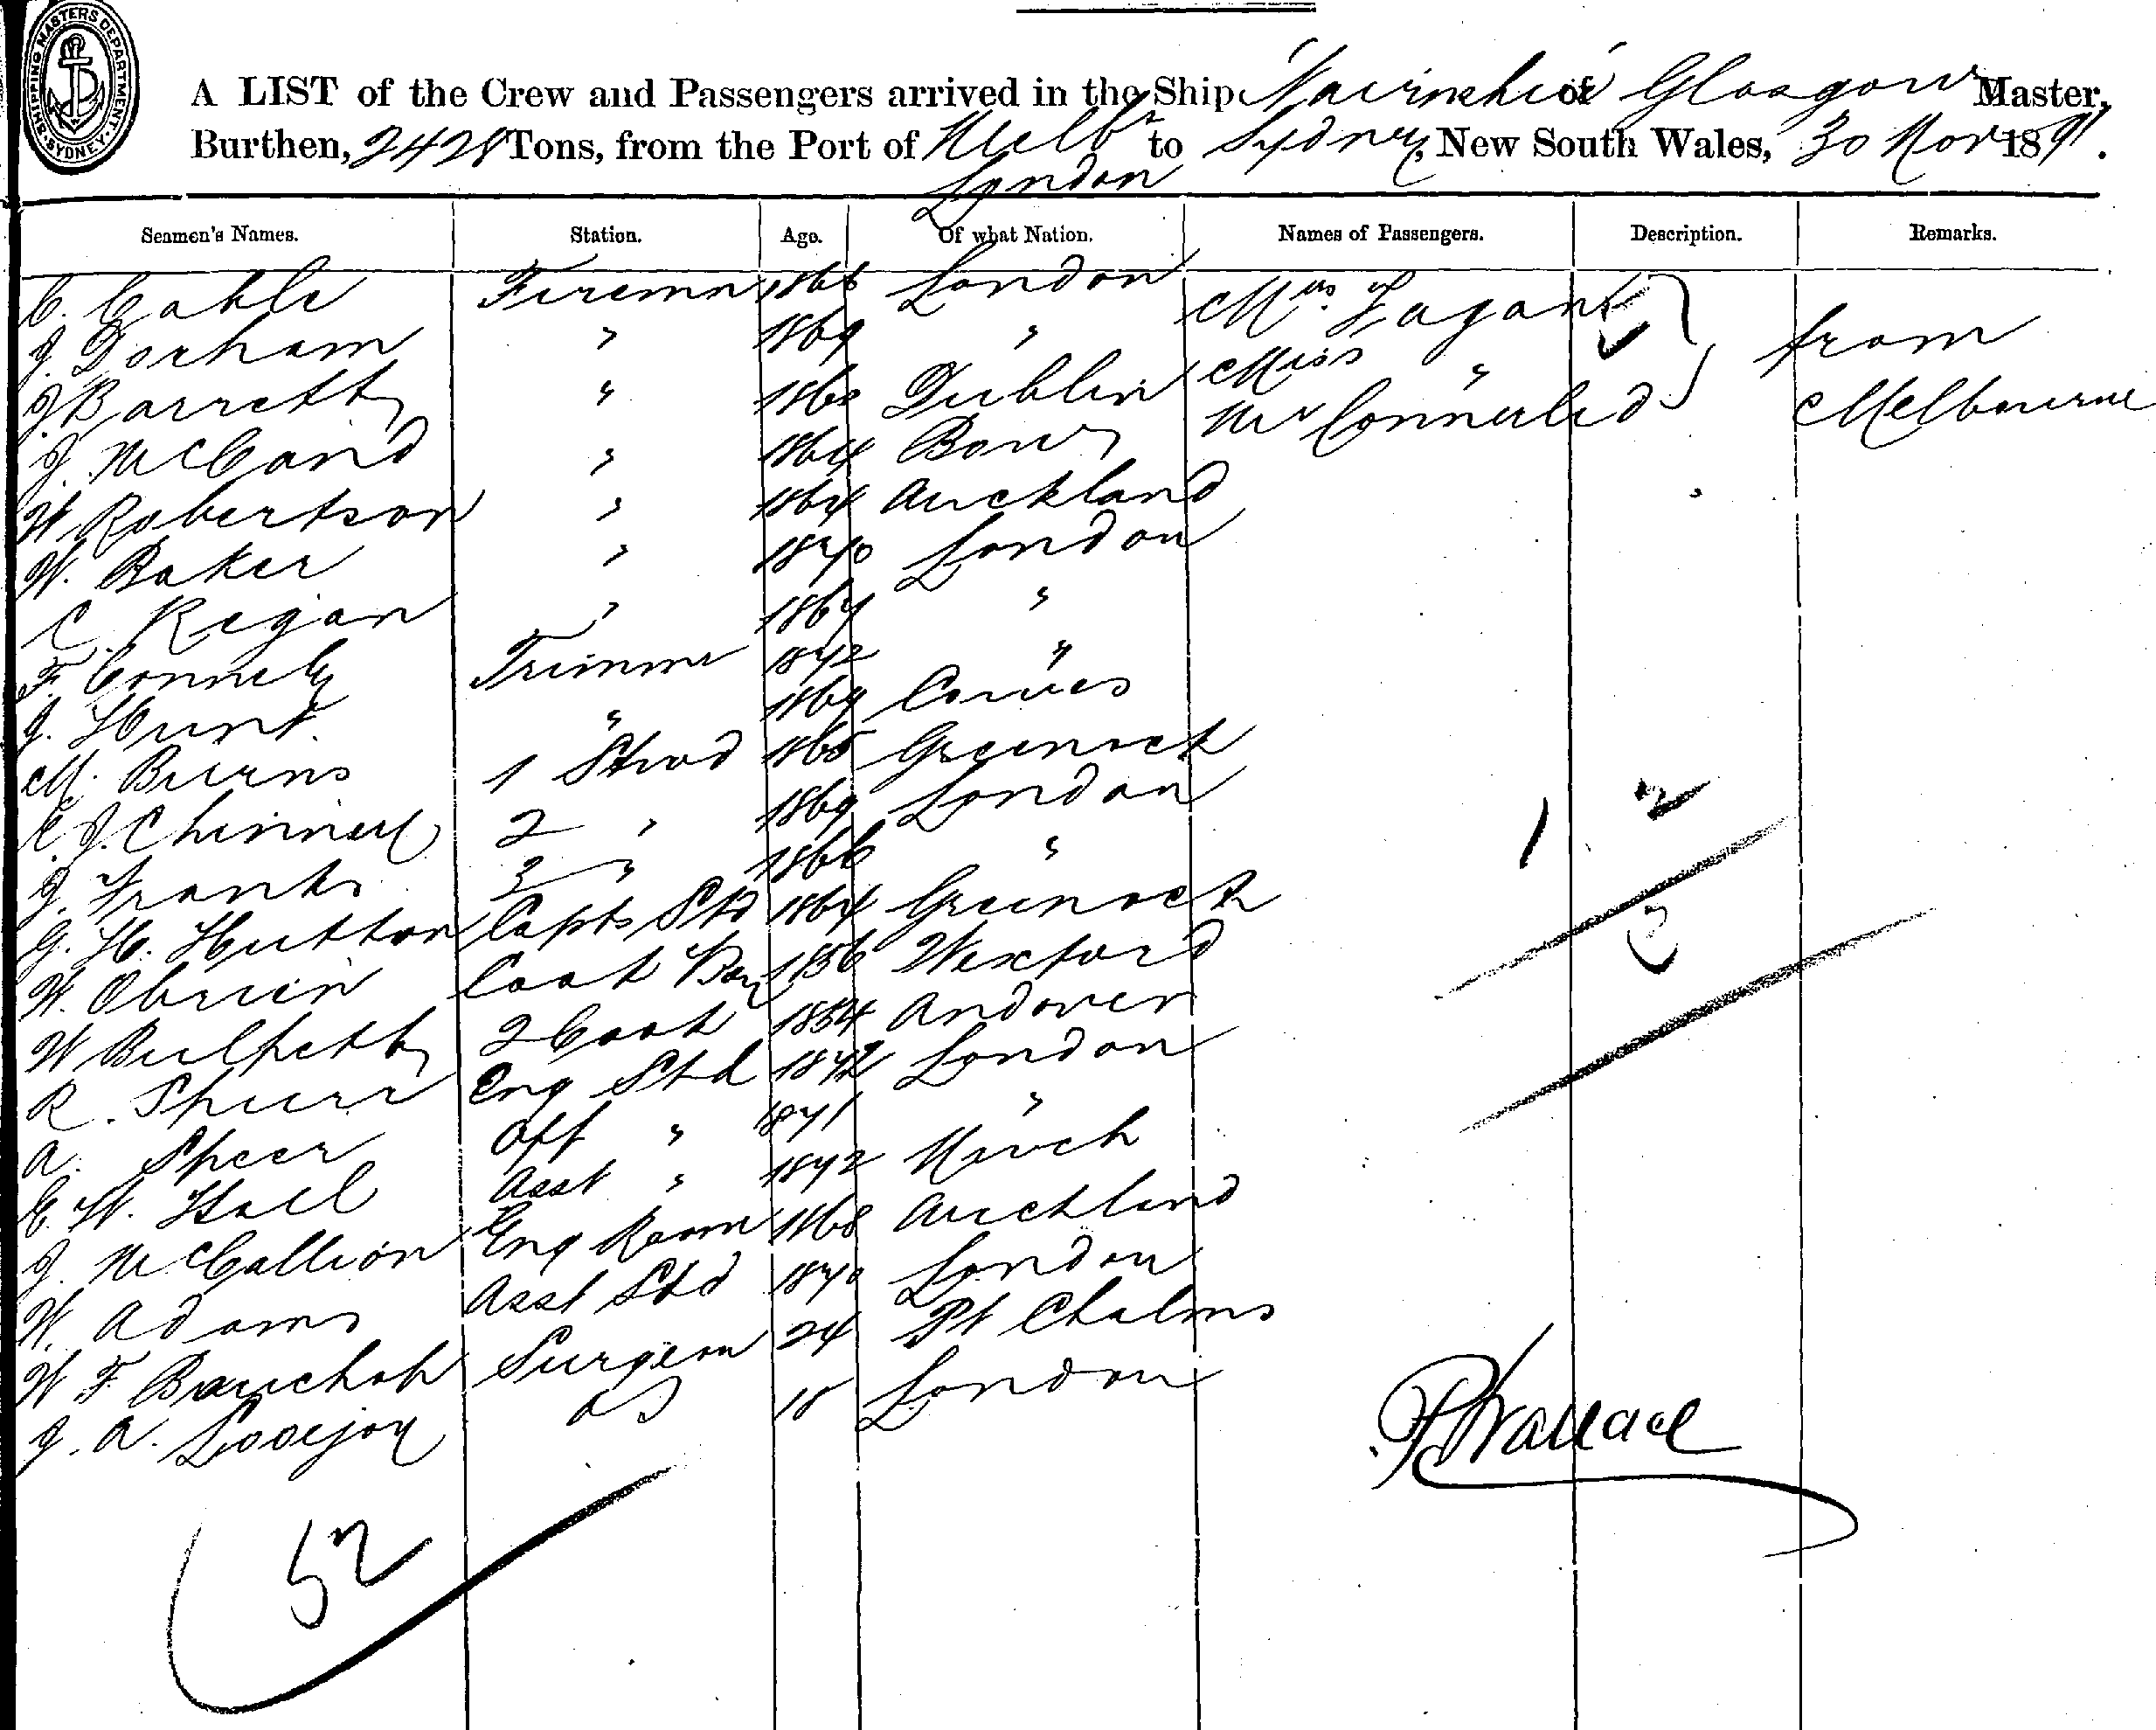 SHIPPING MASTERS DEPARTMENT · SYDNEY ·
A LIST of the Crew and Passengers arrived in the Ship Nairnshire of Glasgow Master,
Burthen, 2428 Tons, from the Port of Melbn to Sydney, New South Wales, 30 Nov 1891.
London
Seamen's Names. Station. Age. Of what Nation. Names of Passengers. Description. Remarks.
C. Cable Firemn 1866 London Mrs. Fagan
J. Dorham " 1869 " Miss " from
J Barrett " 1860 Dublin Mr Connerled Melbourne
J. McCand " 1864 Bow
W Robertson " 1864 Auckland
W. Baker " 1870 London
C. Regan " 1867 "
F. Connely Trimmr 1872 "
J. Hunt " 1869 Cowes
M. Burns 1 Stwd 1865 Greenock
C. J. Chinnery 2 " 1869 London
J. Franks 3 " 1866 "
G. H. Hutton Capts Std 1864 Greenock
W. Obrien Cook 1856 Wexford
W Bulpett 2 Cook 1854 Andover
R. Spurr Eng Std 1872 London
A. Speer Off " 1871 "
E. W. Hall Asst " 1872 March
J. McCallion Eng Room 1868 Auckland
W. Adams Asst Std 1870 London
W F Surgeon 24 Pt Chalms
J. A. Lovejoy OS 18 London
1 2
3
Wallace
52